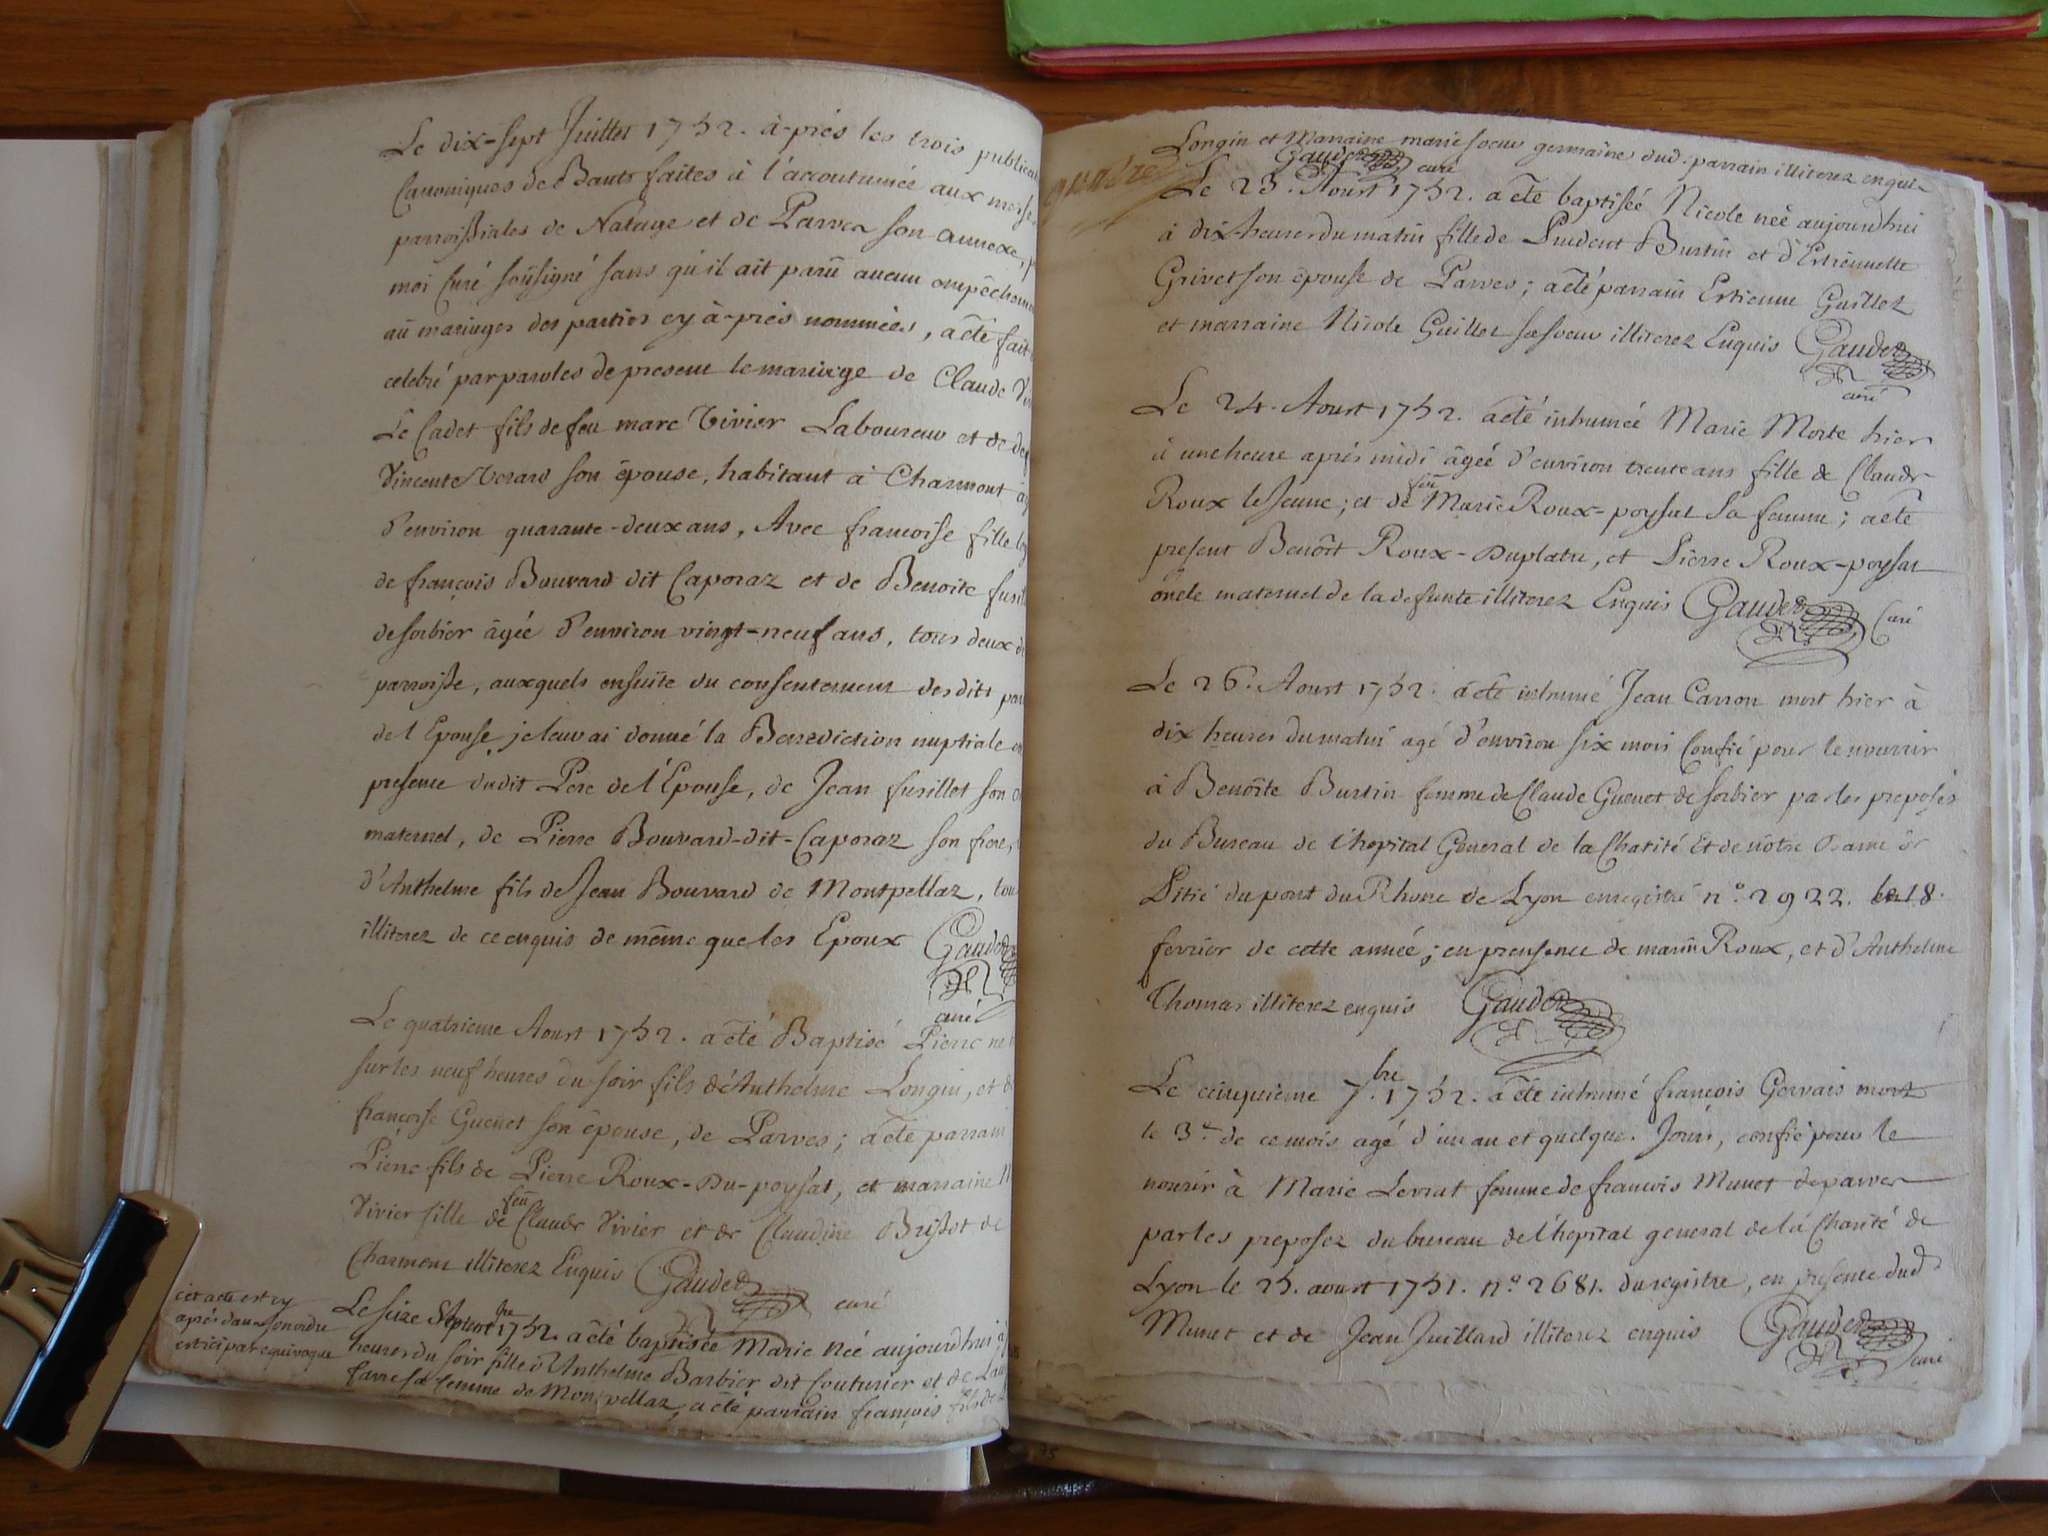 Le dix-sept Juillet 1752. à-priés les trois publica
Canoniques de Bants faites à l'accoutumée aux messes
parroissiales de Natage et de Parves son annexe,
moi Curé soussigné sans qu'il ait parû aucun empêchem
au mariages des parties cy à-priés nommées, a été fait
celebré par paroles de present le mariage de Claude Vi
Le Cadet fils de feu marc Vivier Laboureur et de
Vincente son épouse, habitant à Charmont
d'environ quarante-deux ans, Avec françoise fille
de françois Bouvard dit Caporaz et de Benoite fusil
de sorbier âgée d'environ vingt-neuf ans, tous deux d
parroisse, auxquels ensuite du consentement desdits
de l Epouse je leur ai donné la Benediction nuptiale en
presence dudit Pere de l'Epouse, de Jean fusillet son
maternel, de Pierre Bouvard-dit-Caporaz son frere,
d'Anthelme fils de Jean Bouvard de Montpellaz, tou
illiterez de ce enquis de même que les Epoux Gaudet
curé
Le quatrieme Aoust 1752. a été Baptisé Pierre né
sur les neuf heures du soir fils d'Anthelme Longin, et d
françoise Guenet son épouse, de Parves; a été parrain
Pierre fils de Pierre Roux-Du-poysat, et marraine
feu
Vivier fille de Claude Vivier et de Claudine Brissot de
Charmont illiterez Enquis Gaudet curé
cet acte est cy
après dans son ordre
est ici par equivoque
Le seize 1752 a été baptisée Marie née aujourdhui
heures du soir fille d'Anthelme Barbier dit Couturier et de
sa femme de Montpellaz, a été parrain françois fils de
Longin et Marraine marie soeur germaine dud. parrain illiterez enquis
Gaudet curé
Le 23. Aoust 1752. a été baptisée Nicole née aujourdhui
à dix heures du matin fille de Prudent Burtin et d'Estiennette
Grivet son épouse de Parves; a été parrain Estienne Guillez
et marraine Nicole Guillez sa soeur illiterez Enquis Gaudet
curé
Le 24. Aoust 1752. a été inhumée Marie Morte hier
à une heure aprés midi âgée d'environ trente ans fille de Claude
feu
Roux le Jeune; et de Marie Roux-poysat sa femme; a été
present Benoît Roux-Duplatre, et Pierre Roux-poysat
oncle maternel de la defunte illiterez Enquis Gaudet Curé
Le 26. Aoust 1752. a été inhumé Jean Carron mort hier à
dix heures du matin agé d'environ six mois Confié pour le nourrir
à Benoite Burtin femme de Claude Guenet de sorbier par les preposés
du Bureau de l'hopital General de la Charité Et de nôtre Dame de
Pitié du pont du Rhone de Lyon enregistré n.º 2922. le 18.
fevrier de cette année; en prensence de marin Roux, et d'Anthelme
Thomas illiterez enquis Gaudet
Le cinquieme 7.bre 1752. a été inhumé françois Gervais mort
le 3.e de ce mois agé d'un an et quelque. Jours, confié pour le
nourir à Marie Levrat femme de francois Munet de parves
par les preposez du bureau de l'hopital general de la Charité de
Lyon le 25. aoust 1751. n.º 2681. du registre, en presence dud
Munet et de Jean Juillard illiterez enquis Gaudet
curé